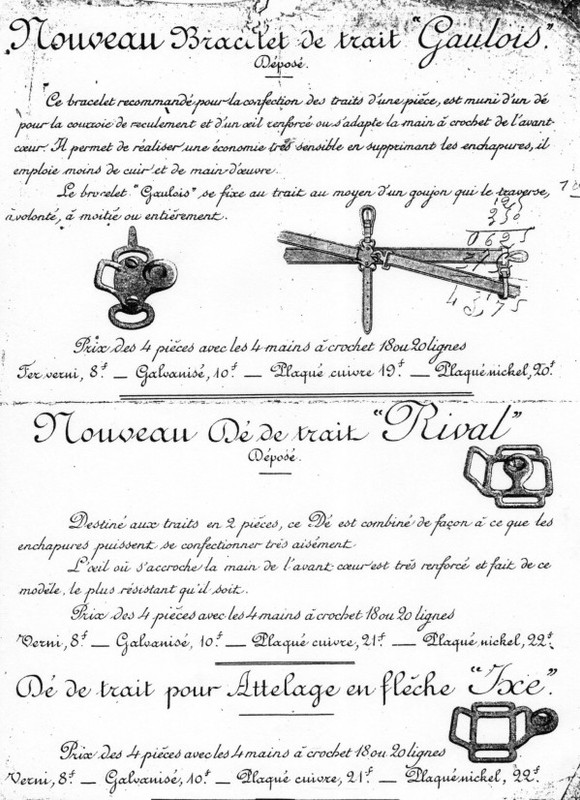 Nouveau Bracelet de trait "Gaulois".
Déposé.
Ce bracelet recommandé pour la confection des traits d'une pièce, est muni d'un dé
pour la courroie de reculement et d'un œil renforcé ou s'adapte la main à crochet de l'avant-
cœur. Il permet de réaliser une économie très sensible en supprimant les enchapures, il
emploie moins de cuir et de main d'œuvre.
Le bracelet "Gaulois" se fixe au trait au moyen d'un goujon qui le traverse,
à volonté, à moitié ou entièrement.
0625
Prix des 4 pièces avec les 4 mains à crochet 18 ou 20 lignes
Fer verni, 8f. — Galvanisé, 10f. — Plaqué cuivre 19f. — Plaqué nickel, 20f.
Nouveau Dé de trait "Rival"
Déposé.
Destiné aux traits en 2 pièces, ce Dé est combiné de façon à ce que les
enchapures puissent se confectionner très aisément.
L'œil où s'accroche la main de l'avant cœur est très renforcé et fait de ce
modèle, le plus résistant qu'il soit.
Prix des 4 pièces avec les 4 mains à crochet 18 ou 20 lignes
Verni, 8f. — Galvanisé, 10f. — Plaqué cuivre, 21f. — Plaqué nickel, 22f.
Dé de trait pour Attelage en flèche "Ixe".
Prix des 4 pièces avec les 4 mains à crochet 18 ou 20 lignes
Verni, 8f. — Galvanisé, 10f. — Plaqué cuivre, 21f. — Plaqué nickel, 22f.